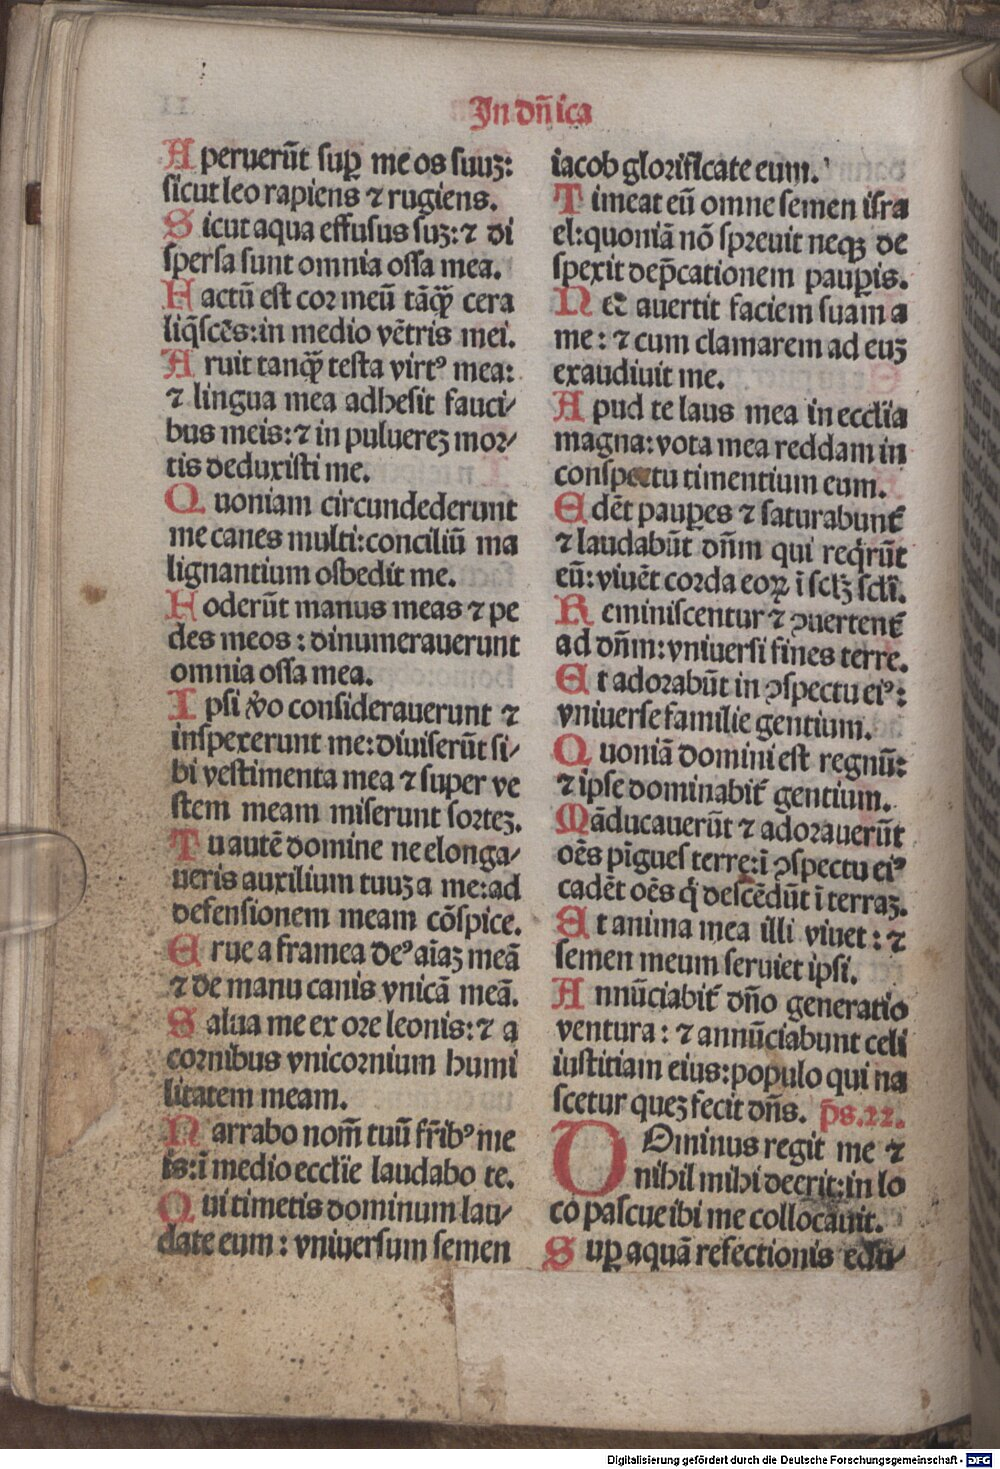 In dn̄ica
Aperuerūt suꝑ me os suuꝫ:
sicut leo rapiens ⁊ rugiens.
Sicut aqua effusus suꝫ: ⁊ di
spersa sunt omnia ossa mea.
Factū est cor meū tāqꝫ̄ cera
liq̄scēs: in medio vētris mei.
Aruit tanqꝫ̄ testa virtꝰ mea:
⁊ lingua mea adhesit fauci⸗
bus meis: ⁊ in puluereꝫ mor⸗
tis deduxisti me.
Quoniam circundederunt
me canes multi: conciliū ma
lignantium osbedit me.
Foderūt manus meas ⁊ pe
des meos: dinumerauerunt
omnia ossa mea.
Ipsi v̊o considerauerunt ⁊
inspexerunt me: diuiserūt si⸗
bi vestimenta mea ⁊ super ve
stem meam miserunt sorteꝫ.
Tu autē domine ne elonga⸗
ueris auxilium tuuꝫ a me: ad
defensionem meam cōspice.
Erue a framea deꝰ aīaꝫ meā
⁊ de manu canis vnicā meā.
Salua me ex ore leonis: ⁊ a
cornibus vnicornium humi
litatem meam.
Narrabo nom̄ tuū fr̄ibꝰ me
is: ī medio eccl̄ie laudabo te.
Qui timetis dominum lau⸗
date eum: vniuersum semen
iacob glorificate eum.
Timeat eū omne semen isra
el: quoniā nō spreuit neqꝫ de
spexit dep̄cationem pauꝑis.
Nec auertit faciem suam a
me: ⁊ cum clamarem ad euꝫ
exaudiuit me.
Apud te laus mea in eccl̄ia
magna: vota mea reddam in
conspectu timentium eum.
Edēt pauꝑes ⁊ saturabunt᷑
⁊ laudabūt dn̄m qui reqͥrūt
eū: viuēt corda eoꝝ ī scl̄ꝫ scl̄i.
Reminiscentur ⁊ ꝯuertent᷑
ad dn̄m: vniuersi fines terre.
Et adorabūt in ꝯspectu eiꝰ:
vniuerse familie gentium.
Quoniā domini est regnū:
⁊ ipse dominabit᷑ gentium.
Māducauerūt ⁊ adorauerūt
oēs pīgues terre: ī ꝯspectu eiꝰ
cadēt oēs qͥ descēdūt ī terraꝫ.
At anima mea illi viuet: ⁊
semen meum seruiet ipsi.
Annūciabit᷑ dn̄o generatio
ventura: ⁊ annūciabunt celi
iustitiam eius: populo qui na
scetur queꝫ fecit dn̄s. p̄s.22.
DOminus regit me ⁊
nihil mihi deerit: in lo
co pascue ibi me collocauit.
Suꝑ aquā refectionis edu⸗
Digitalisierung gefördert durch die Deutsche Forschungsgemeinschaft - DFG